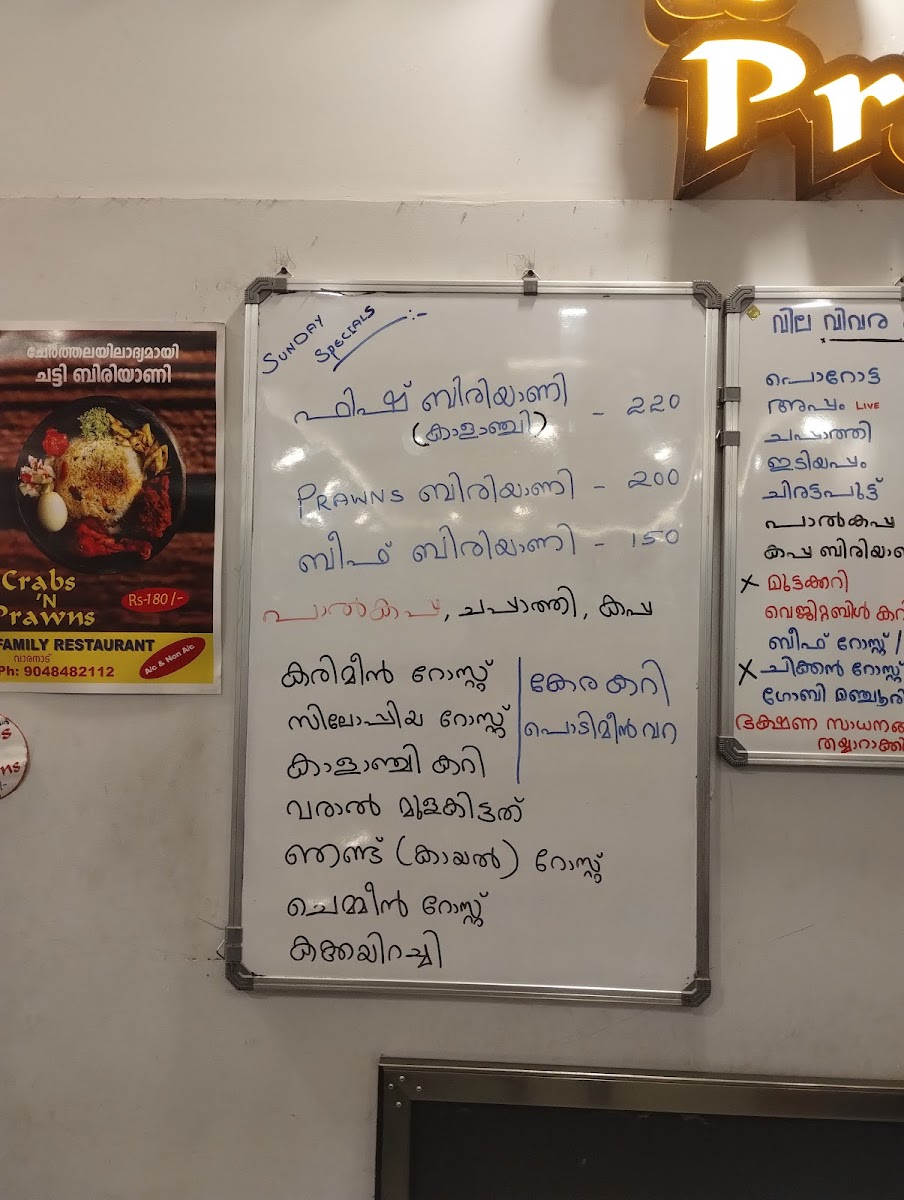 Pr
ചേർത്തലയിലാദ്യമായി
ചട്ടി ബിരിയാണി
Crabs
'N
Prawns
Rs-180/-
FAMILY RESTAURANT
വാരനാട്
Ph: 9048482112
A/c & Non A/c
SUNDAY
SPECIALS :-
ഫിഷ് ബിരിയാണി - 220
(കാളാഞ്ചി)
PRAWNS ബിരിയാണി - 200
ബീഫ് ബിരിയാണി - 150
പാൽകപ്പ, ചപ്പാത്തി, കപ്പ
കരിമീൻ റോസ്റ്റ്
സിലോപ്പിയ റോസ്റ്റ്
കാളാഞ്ചി കറി
വരാൽ മുളകിട്ടത്
ഞണ്ട് (കായൽ) റോസ്റ്റ്
ചെമ്മീൻ റോസ്റ്റ്
കക്കയിറച്ചി
കേര കറി
പൊടിമീൻ വറ
വില വിവര
പൊറോട്ട
അപ്പം LIVE
ചപ്പാത്തി
ഇടിയപ്പം
ചിരട്ടപുട്ട്
പാൽകപ്പ
കപ്പ ബിരിയാ
x മുട്ടക്കറി
വെജിറ്റബിൾ കറി
ബീഫ് റോസ്റ്റ് /
x ചിക്കൻ റോസ്റ്റ്
ഗോബി മഞ്ചൂരി
ഭക്ഷണ സാധനങ്ങ
തയ്യാറാക്കി